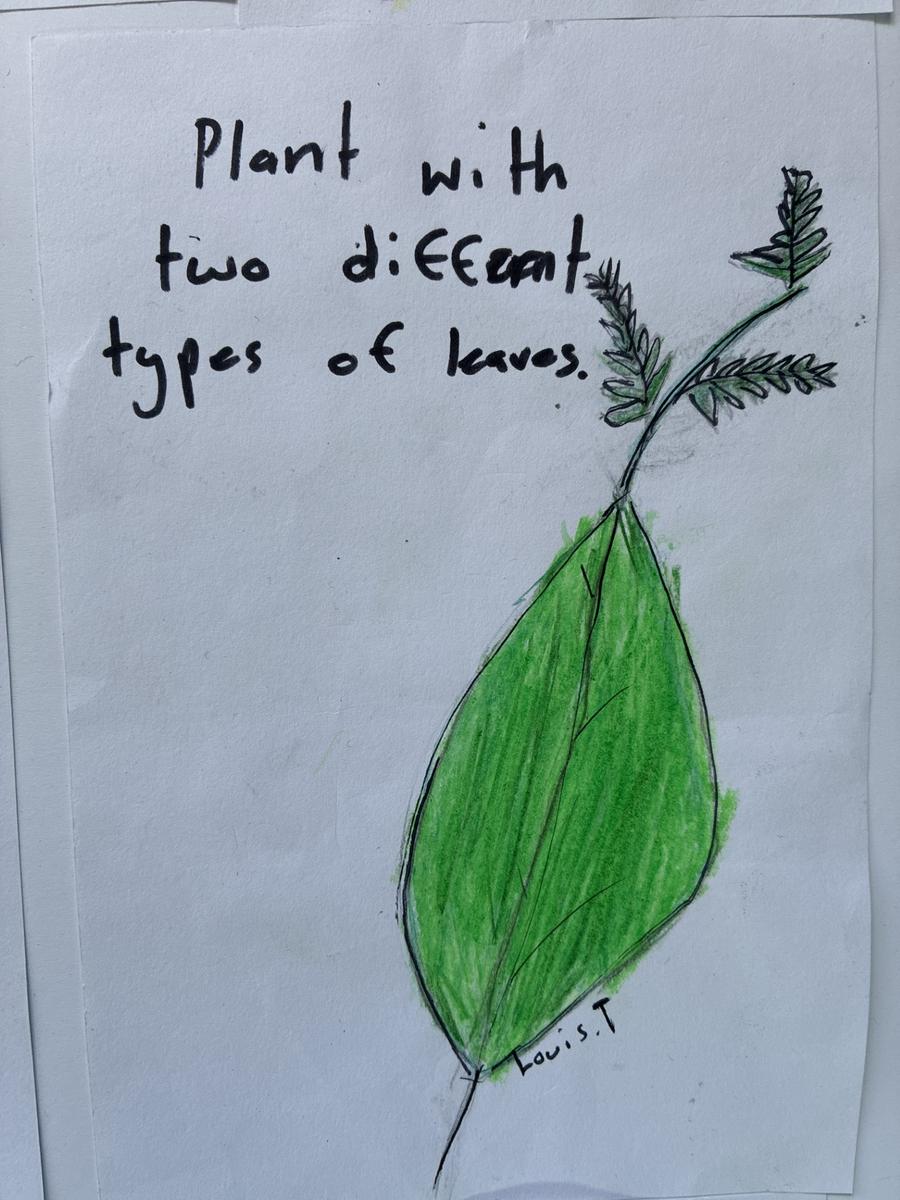 Plant with
two different
types of leaves.
Louis.T